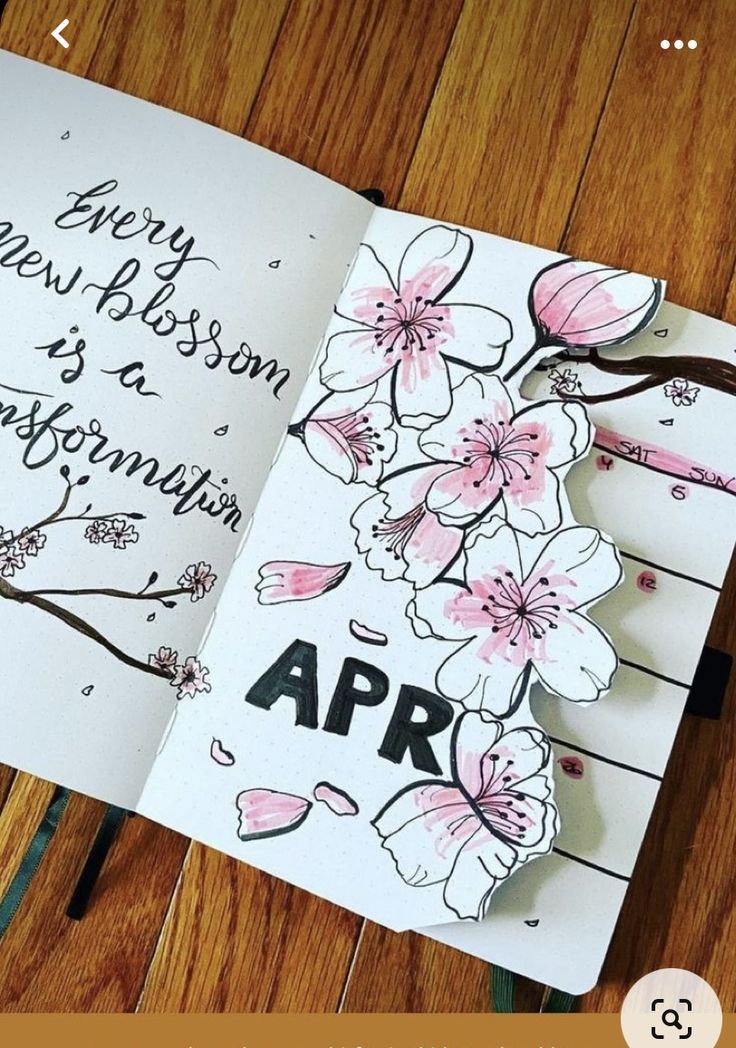 Every
new blossom
is a
nsformation
APR
SAT SUN
4
12
26